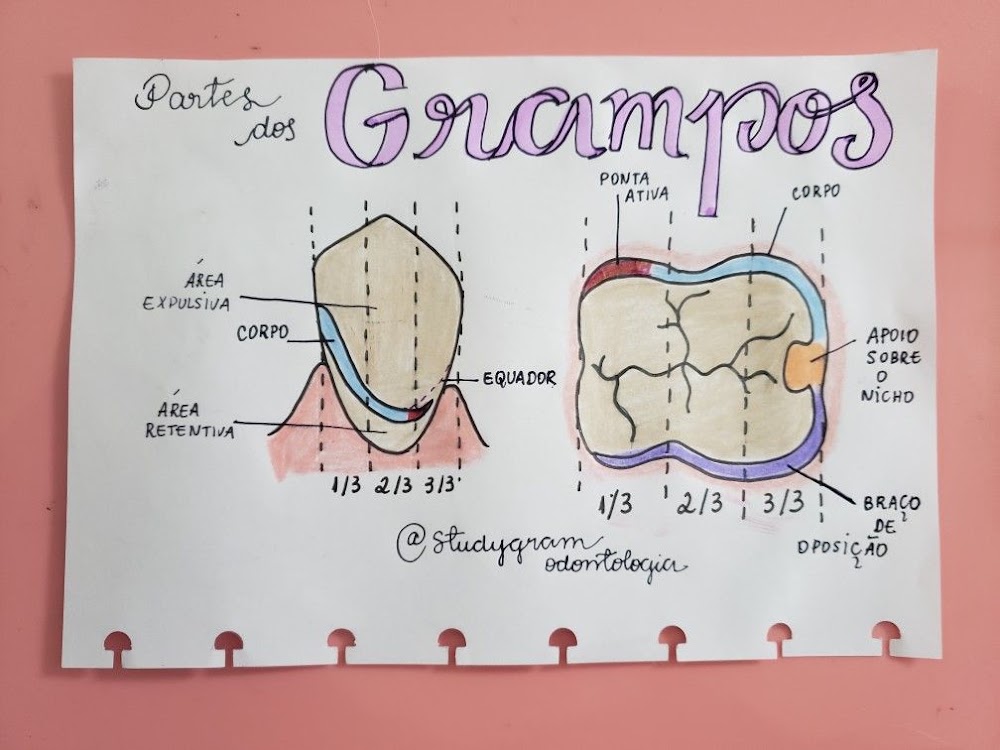 Partes
dos
Grampos
ÁREA
EXPULSIVA
CORPO
ÁREA
RETENTIVA
EQUADOR
1/3 2/3 3/3
PONTA
ATIVA
CORPO
APOIO
SOBRE
O
NICHO
BRAÇO
DE
OPOSIÇÃO
1/3 2/3 3/3
@studygram
odontologia